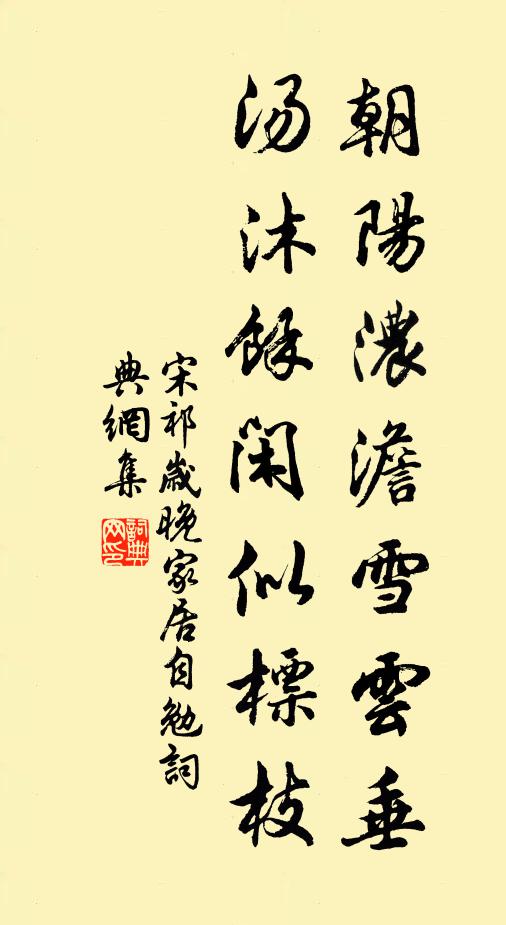 朝陽濃澹雪雲垂
汤沐餘閑似標枝
宋祁歲晚家居自勉詞
典網集
詞典网印